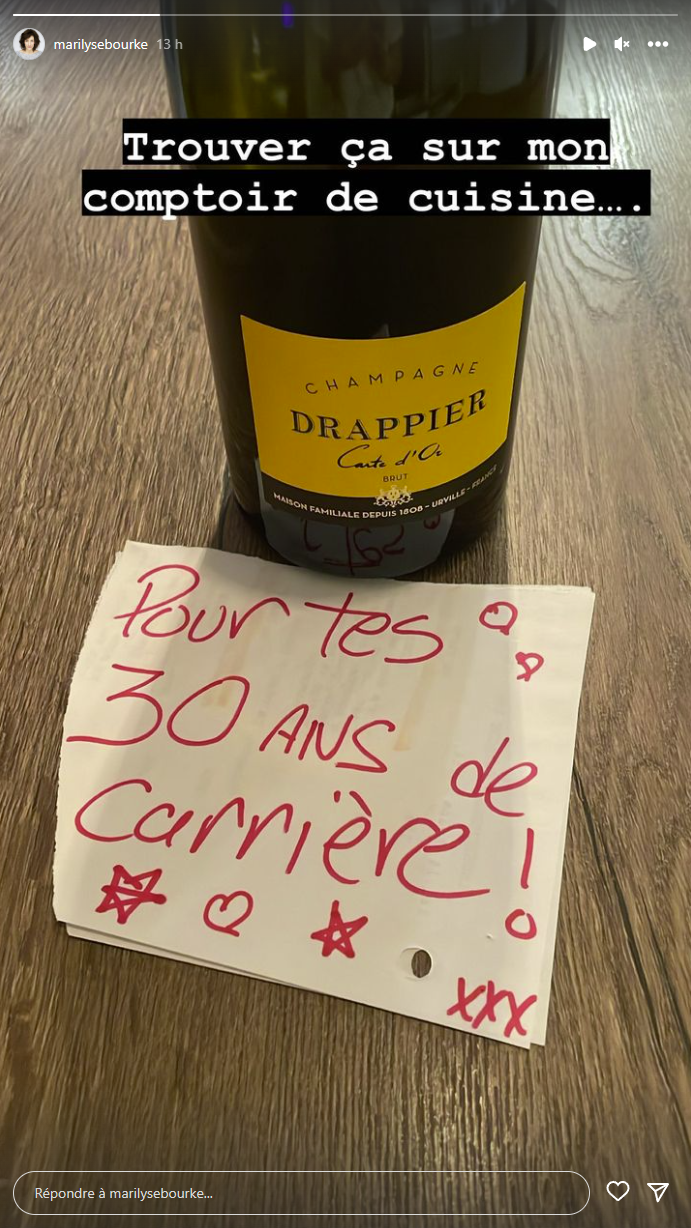 marilysebourke 13 h
Trouver ça sur mon
comptoir de cuisine….
CHAMPAGNE
DRAPPIER
Carte d'Or
BRUT
MAISON FAMILIALE DEPUIS 1808 - URVILLE - FRANCE
Pour tes
30 ANS de
carrière!
xxx
Répondre à marilysebourke...